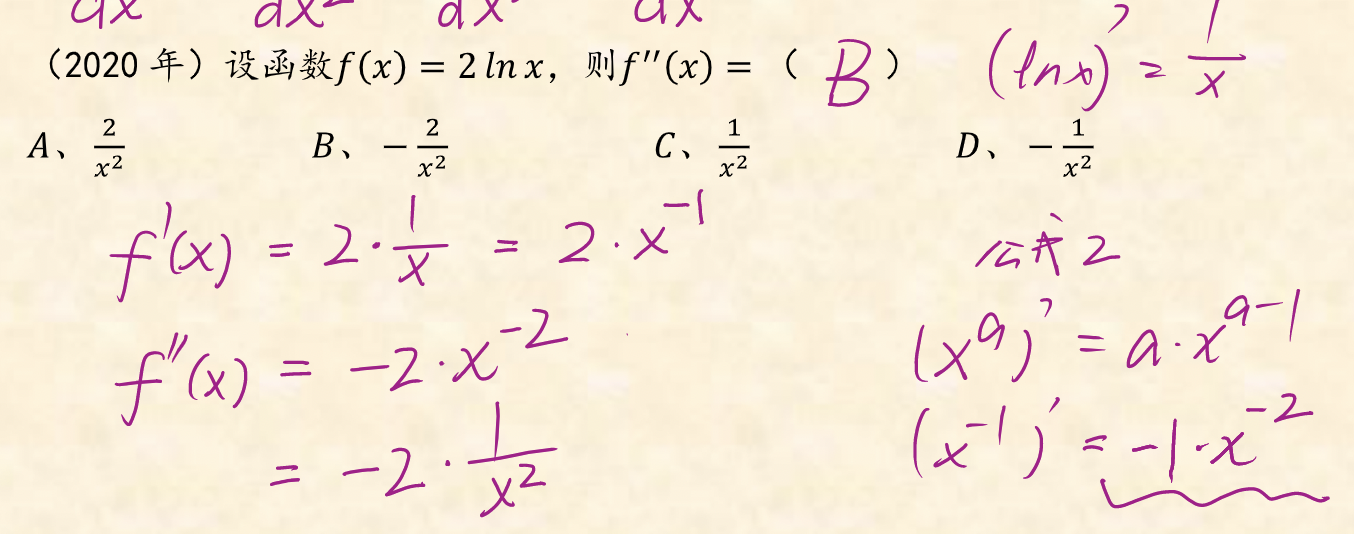 dx dx² dx² dx
（2020 年）设函数f(x) = 2 ln x，则f′′(x) =（ B ） (lnx)' = 1/x
A、2/x² B、−2/x² C、1/x² D、−1/x²
f'(x) = 2·1/x = 2·x⁻¹
公式2
f''(x) = −2·x⁻²
(xᵃ)' = a·xᵃ⁻¹
= −2·1/x²
(x⁻¹)' = −1·x⁻²